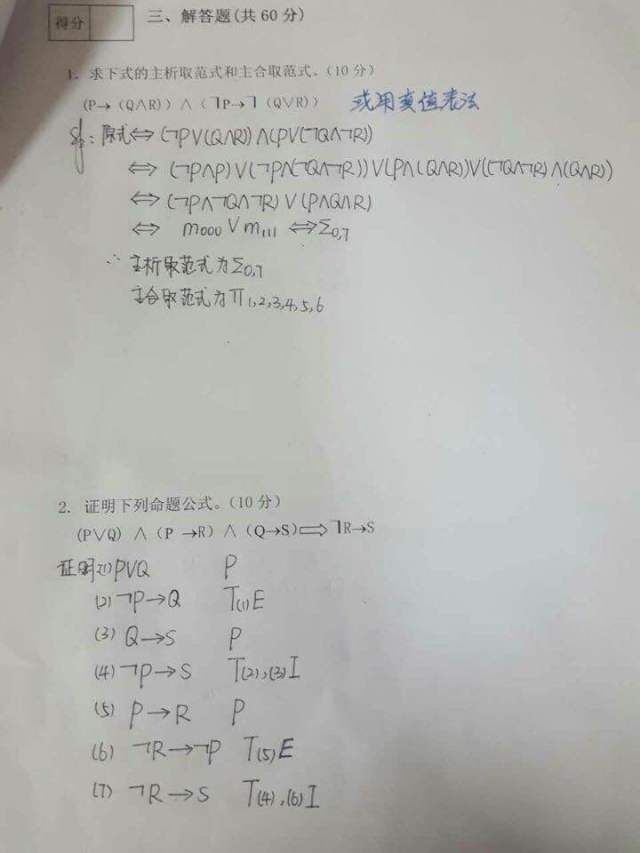 得分
三、解答题(共 60 分)
1. 求下式的主析取范式和主合取范式。(10 分)
(P→（Q∧R)）∧（¬P→¬（Q∨R)） 或用真值表法
解：原式⇔(¬P∨(Q∧R))∧(P∨(¬Q∧¬R))
⇔ (¬P∧P)∨(¬P∧(¬Q∧¬R))∨(P∧(Q∧R))∨((¬Q∧¬R)∧(Q∧R))
⇔(¬P∧¬Q∧¬R)∨(P∧Q∧R)
⇔ m000∨m111 ⇔Σ0,7
∴ 主析取范式为Σ0,7
主合取范式为Π1,2,3,4,5,6
2. 证明下列命题公式。(10 分)
(P∨Q) ∧（P →R）∧（Q→S)⟹¬R→S
证明:(1) P∨Q P
(2) ¬P→Q T(1)E
(3) Q→S P
(4) ¬P→S T(2),(3)I
(5) P→R P
(6) ¬R→¬P T(5)E
(7) ¬R→S T(4),(6)I